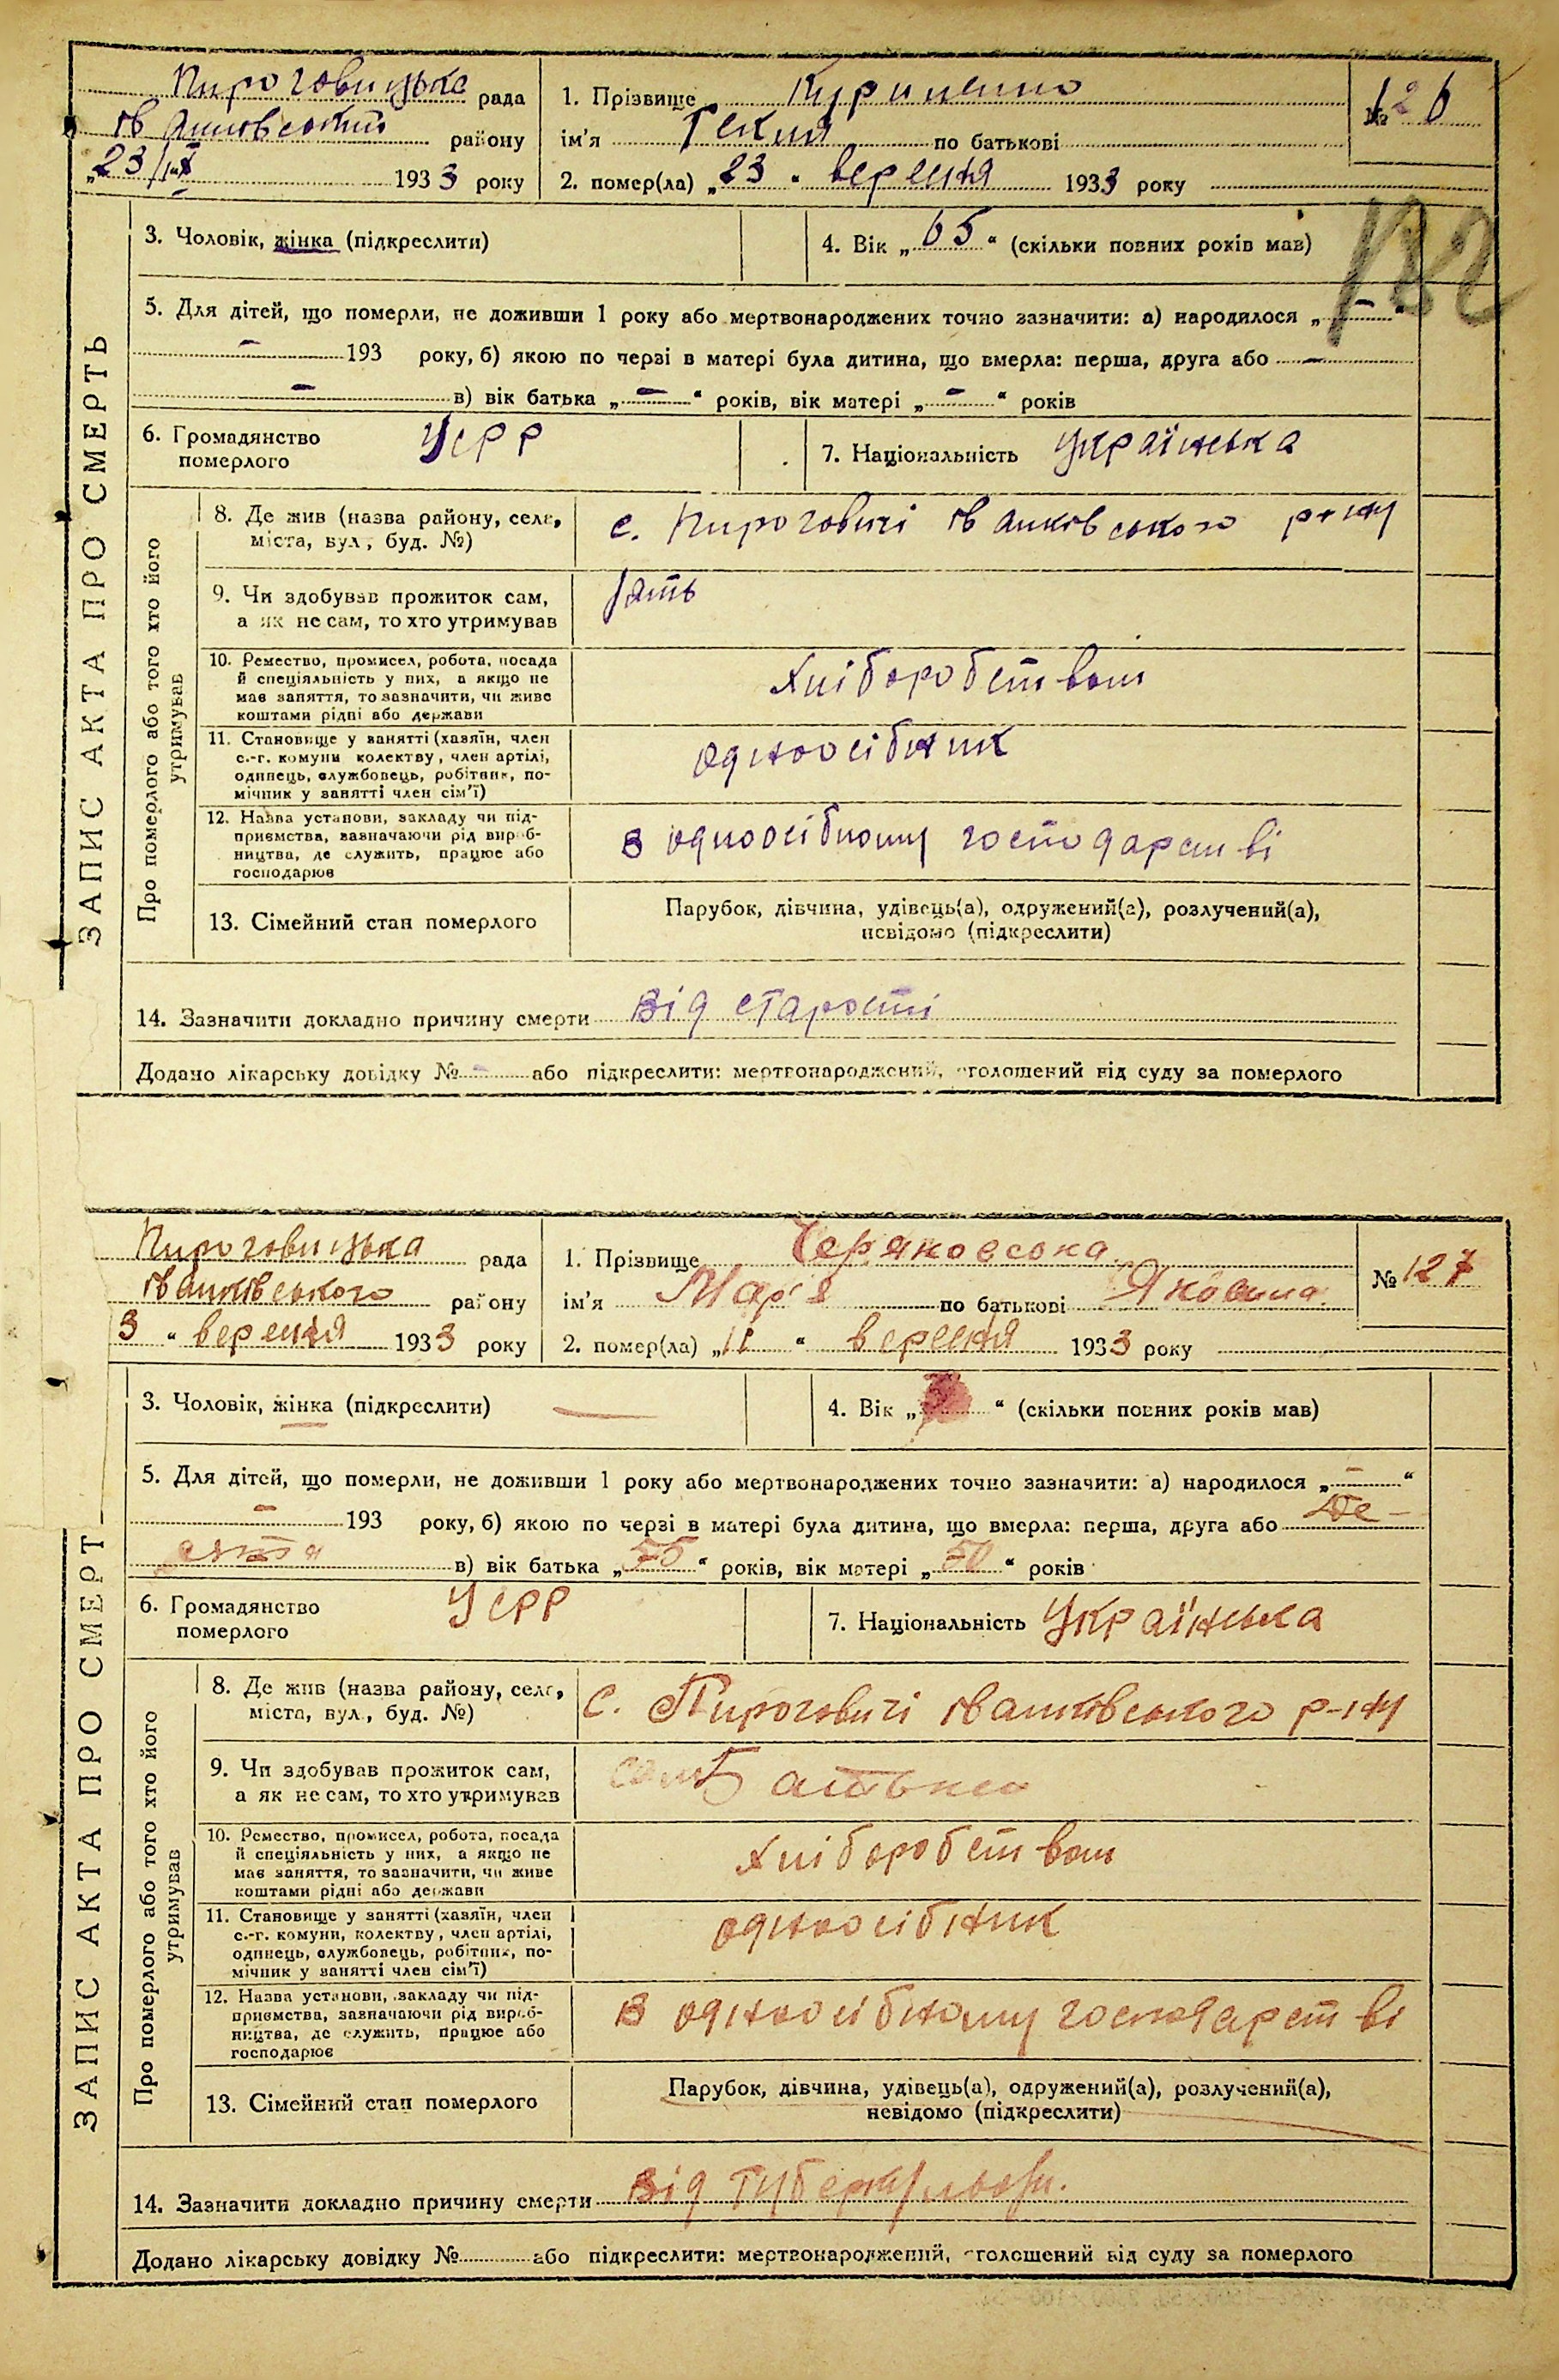 Пироговицька рада
Іванківський району
„23/ІХ 1933 року
1. Прізвище Куриленко
ім'я Гекия по батькові
2. помер(ла) „23" вересня 1933 року
№ 126
132
ЗАПИС АКТА ПРО СМЕРТЬ
3. Чоловік, жінка (підкреслити)
4. Вік „65" (скільки повних років мав)
5. Для дітей, що померли, не доживши 1 року або мертвонароджених точно зазначити: а) народилося „—"
— 193 року, б) якою по черзі в матері була дитина, що вмерла: перша, друга або —
— в) вік батька „—" років, вік матері „—" років
6. Громадянство
померлого
УСРР
7. Національність Українська
Про померлого або того хто його
утримував
8. Де жив (назва району, села,
міста, вул., буд. №)
с. Пироговичі Іванківського р-ну
9. Чи здобував прожиток сам,
а як не сам, то хто утримував
зять
10. Ремество, промисел, робота, посада
й спеціяльність у них, а якщо не
має заняття, то зазначити, чи живе
коштами рідні або держави
Хліборобством
11. Становище у занятті (хазяїн, член
с.-г. комуни колективу, член артілі,
одинець, службовець, робітник, по-
мічник у занятті член сім'ї)
одноосібник
12. Назва установи, закладу чи під-
приємства, зазначаючи рід вироб-
ництва, де служить, працює або
господарює
в одноосібному господарстві
13. Сімейний стан померлого
Парубок, дівчина, удівець(а), одружений(а), розлучений(а),
невідомо (підкреслити)
14. Зазначити докладно причину смерти Від старості
Додано лікарську довідку № - або підкреслити: мертвонароджений, оголошений від суду за померлого
Пироговицька рада
Іванківського району
3 " вересня 1933 року
1. Прізвище Черяковська
ім'я Мар'я по батькові Яковина
2. помер(ла) „11" вересня 1933 року
№ 127
ЗАПИС АКТА ПРО СМЕРТ
3. Чоловік, жінка (підкреслити)
4. Вік „ " (скільки повних років мав)
5. Для дітей, що померли, не доживши 1 року або мертвонароджених точно зазначити: а) народилося „—"
— 193 року, б) якою по черзі в матері була дитина, що вмерла: перша, друга або Де-
сята в) вік батька „55" років, вік матері „50" років
6. Громадянство
померлого
УСРР
7. Національність Українська
Про померлого або того хто його
утримував
8. Де жив (назва району, села,
міста, вул., буд. №)
С. Пироговичі Іванківського р-ну
9. Чи здобував прожиток сам,
а як не сам, то хто утримував
батько
10. Ремество, промисел, робота, посада
й спеціяльність у них, а якщо не
має заняття, то зазначити, чи живе
коштами рідні або держави
Хліборобством
11. Становище у занятті (хазяїн, член
с.-г. комуни, колективу, член артілі,
одинець, службовець, робітник, по-
мічник у занятті член сім'ї)
одноосібник
12. Назва установи, закладу чи під-
приємства, зазначаючи рід вироб-
ництва, де служить, працює або
господарює
в одноосібному господарстві
13. Сімейний стан померлого
Парубок, дівчина, удівець(а), одружений(а), розлучений(а),
невідомо (підкреслити)
14. Зазначити докладно причину смерти Від туберкульози.
Додано лікарську довідку № або підкреслити: мертвонароджений, оголошений від суду за померлого